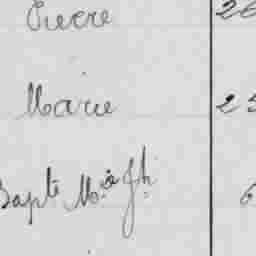 Pierre 26
Marie 25
Bapte Mia Jh. 6